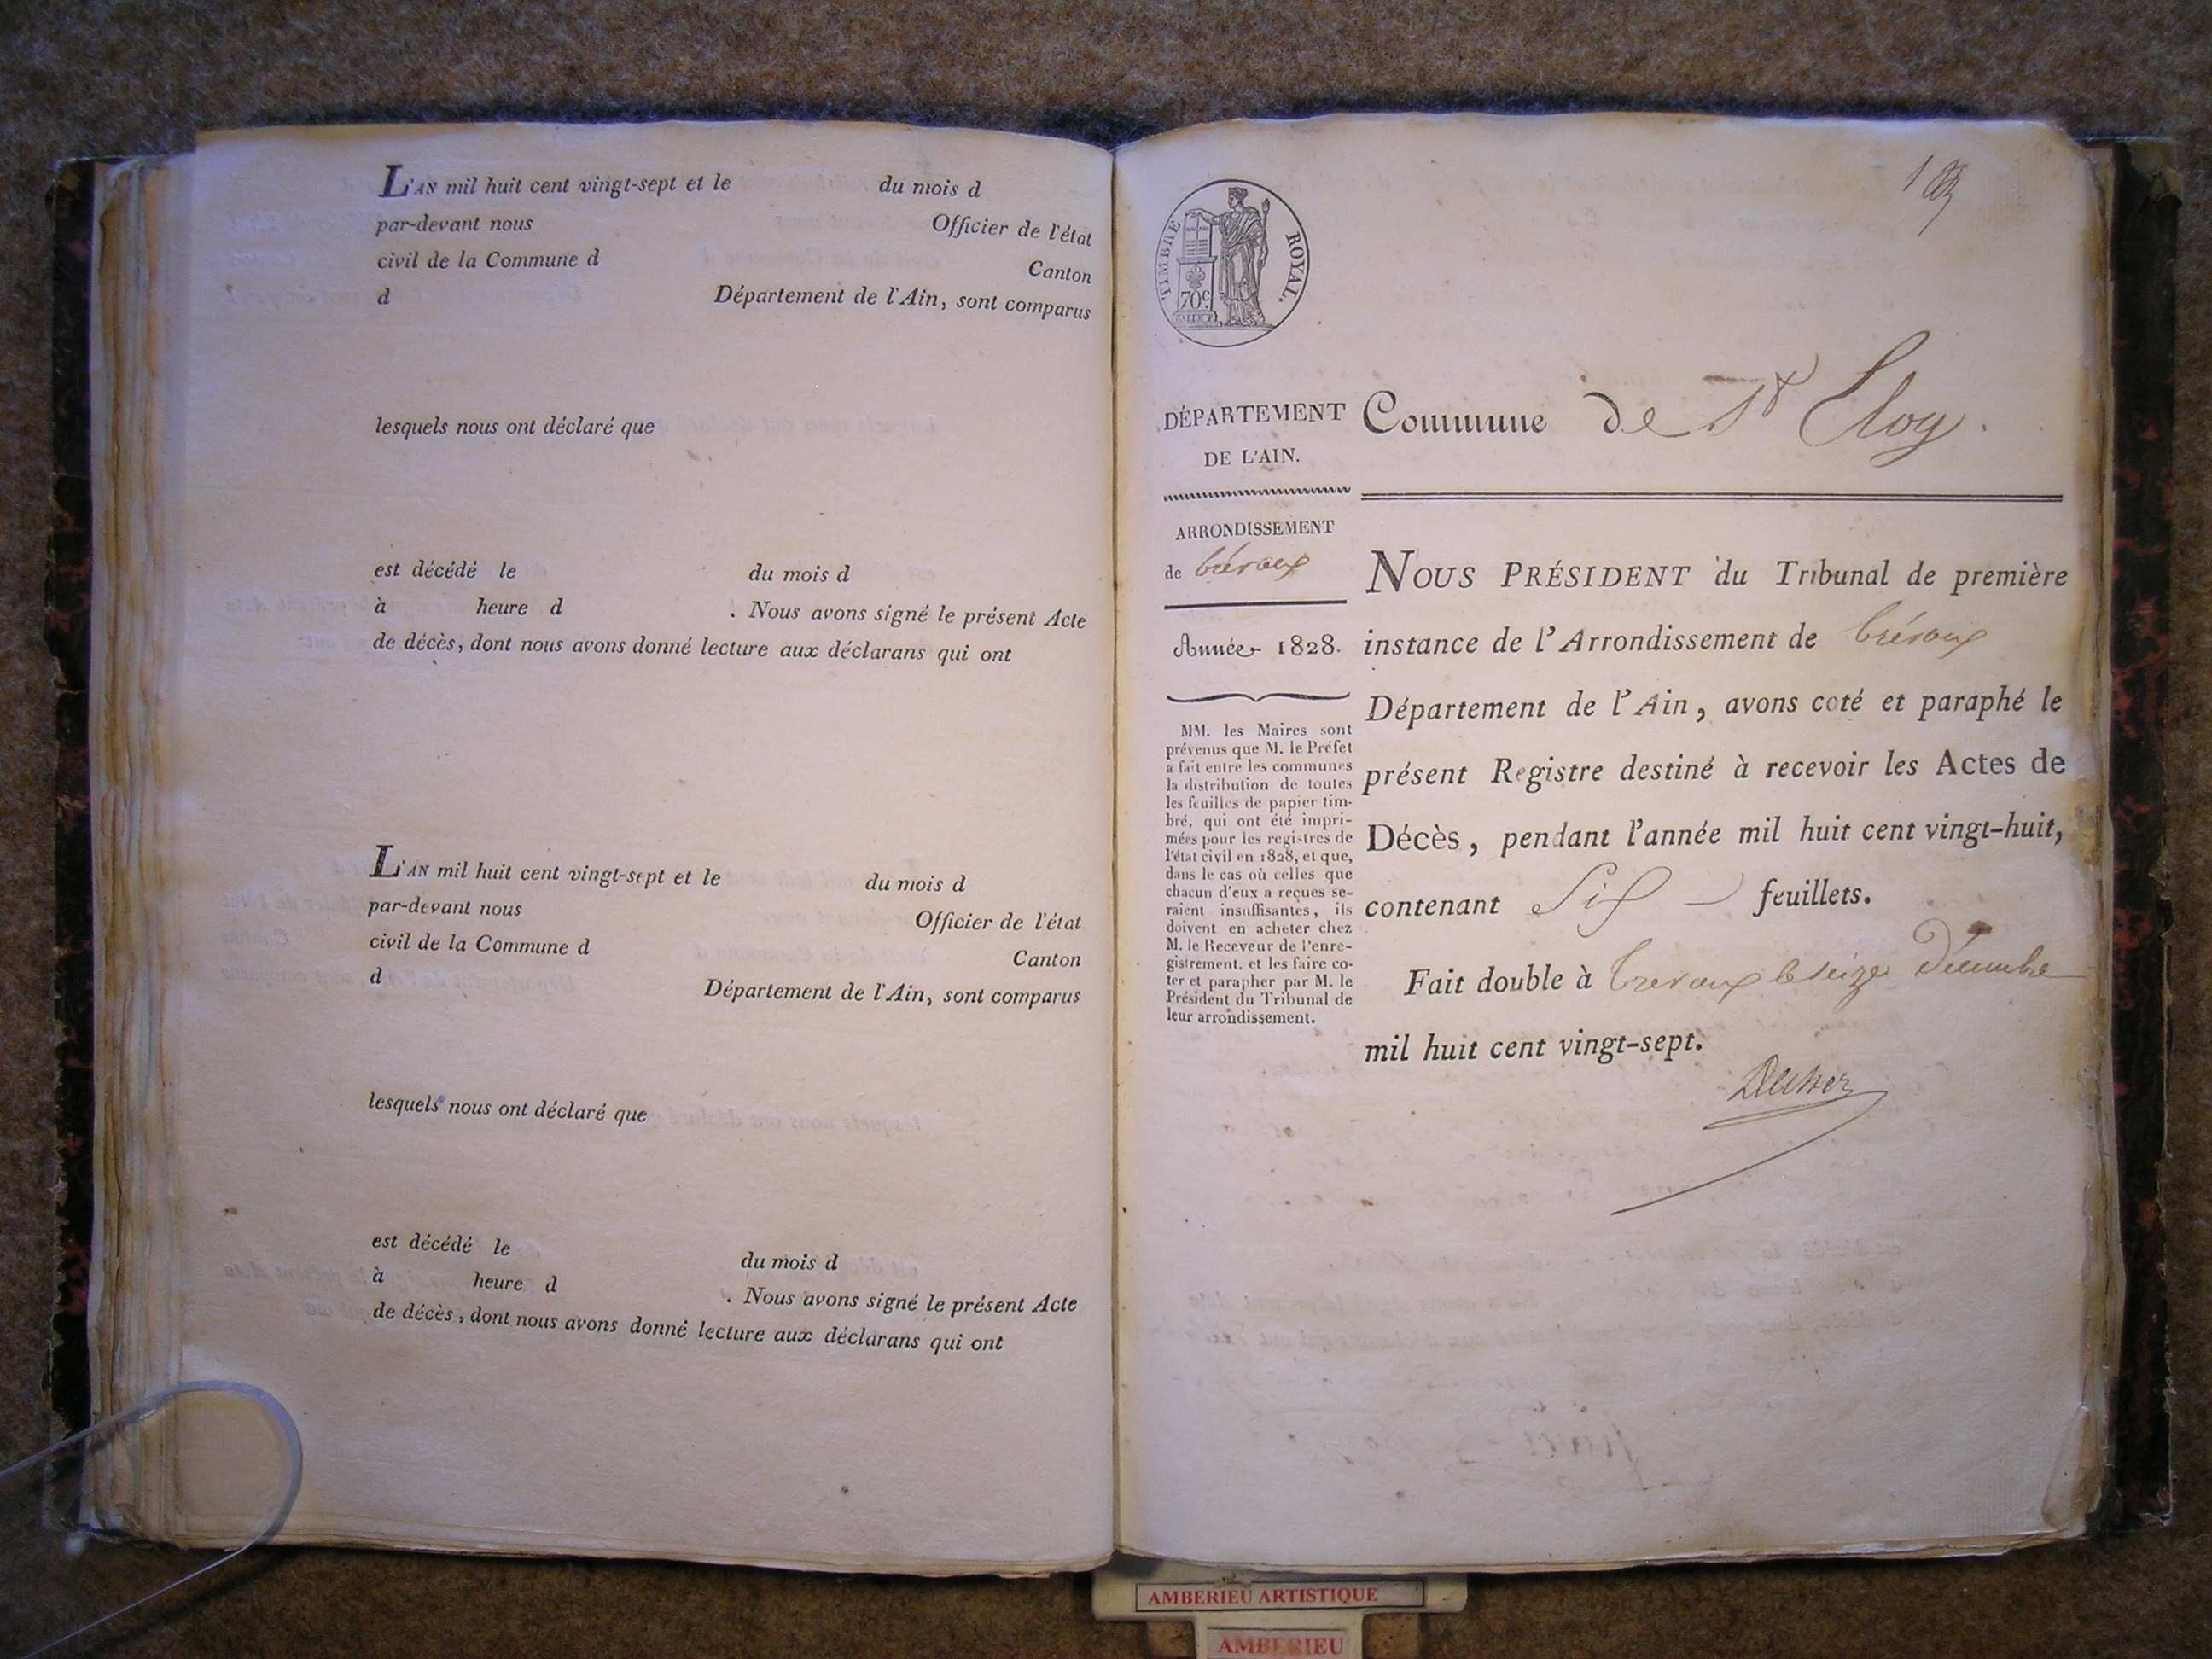 L'AN mil huit cent vingt-sept et le du mois d
par-devant nous Officier de l'état
civil de la Commune d Canton
d Département de l'Ain, sont comparus
lesquels nous ont déclaré que
est décédé le du mois d
à heure d . Nous avons signé le présent Acte
de décès, dont nous avons donné lecture aux déclarans qui ont
L'AN mil huit cent vingt-sept et le du mois d
par-devant nous Officier de l'état
civil de la Commune d Canton
d Département de l'Ain, sont comparus
lesquels nous ont déclaré que
est décédé le du mois d
à heure d . Nous avons signé le présent Acte
de décès, dont nous avons donné lecture aux déclarans qui ont
TIMBRE ROYAL.
70c.
DÉPARTEMENT
DE L'AIN.
ARRONDISSEMENT
de trévoux
Année 1828.
MM. les Maires sont
prévenus que M. le Préfet
a fait entre les communes
la distribution de toutes
les feuilles de papier tim-
bré, qui ont été impri-
mées pour les registres de
l'état civil en 1828, et que,
dans le cas où celles que
chacun d'eux a reçues se-
raient insuffisantes, ils
doivent en acheter chez
M. le Receveur de l'enre-
gistrement, et les faire co-
ter et parapher par M. le
Président du Tribunal de
leur arrondissement.
Commune de St Eloy.
NOUS PRÉSIDENT du Tribunal de première
instance de l'Arrondissement de trévoux
Département de l'Ain, avons coté et paraphé le
présent Registre destiné à recevoir les Actes de
Décès, pendant l'année mil huit cent vingt-huit,
contenant Six feuillets.
Fait double à trevoux le seize Décembre
mil huit cent vingt-sept.
AMBERIEU ARTISTIQUE
AMBERIEU